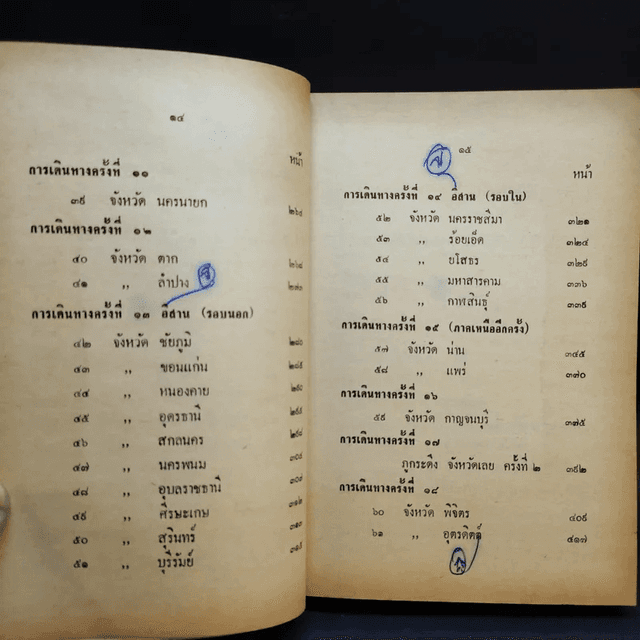 ๑๔
หน้า
การเดินทางครั้งที่ ๑๑
๓๙ จังหวัด นครนายก ๒๖๔
การเดินทางครั้งที่ ๑๒
๔๐ จังหวัด ตาก ๒๖๘
๔๑ ,, ลำปาง
การเดินทางครั้งที่ ๑๓ อีสาน (รอบนอก)
๔๒ จังหวัด ชัยภูมิ ๒๘๐
๔๓ ,, ขอนแก่น ๒๘๕
๔๔ ,, หนองคาย ๒๙๐
๔๕ ,, อุดรธานี
๔๖ ,, สกลนคร
๔๗ ,, นครพนม ๓๐๔
๔๘ ,, อุบลราชธานี
๔๙ ,, ศีรษะเกษ
๕๐ ,, สุรินทร์
๕๑ ,, บุรีรัมย์
๑๕
หน้า
การเดินทางครั้งที่ ๑๔ อีสาน (รอบใน)
๕๒ จังหวัด นครราชสีมา ๓๒๑
๕๓ ,, ร้อยเอ็ด ๓๒๔
๕๔ ,, ยโสธร ๓๒๙
๕๕ ,, มหาสารคาม ๓๓๖
๕๖ ,, กาฬสินธุ์ ๓๓๙
การเดินทางครั้งที่ ๑๕ (ภาคเหนืออีกครั้ง)
๕๗ จังหวัด น่าน ๓๔๕
๕๘ ,, แพร่ ๓๗๐
การเดินทางครั้งที่ ๑๖
๕๙ จังหวัด กาญจนบุรี ๓๗๕
การเดินทางครั้งที่ ๑๗
ภูกระดึง จังหวัดเลย ครั้งที่ ๒ ๓๙๒
การเดินทางครั้งที่ ๑๘
๖๐ จังหวัด พิจิตร ๔๐๙
๖๑ ,, อุตรดิตถ์ ๔๑๗